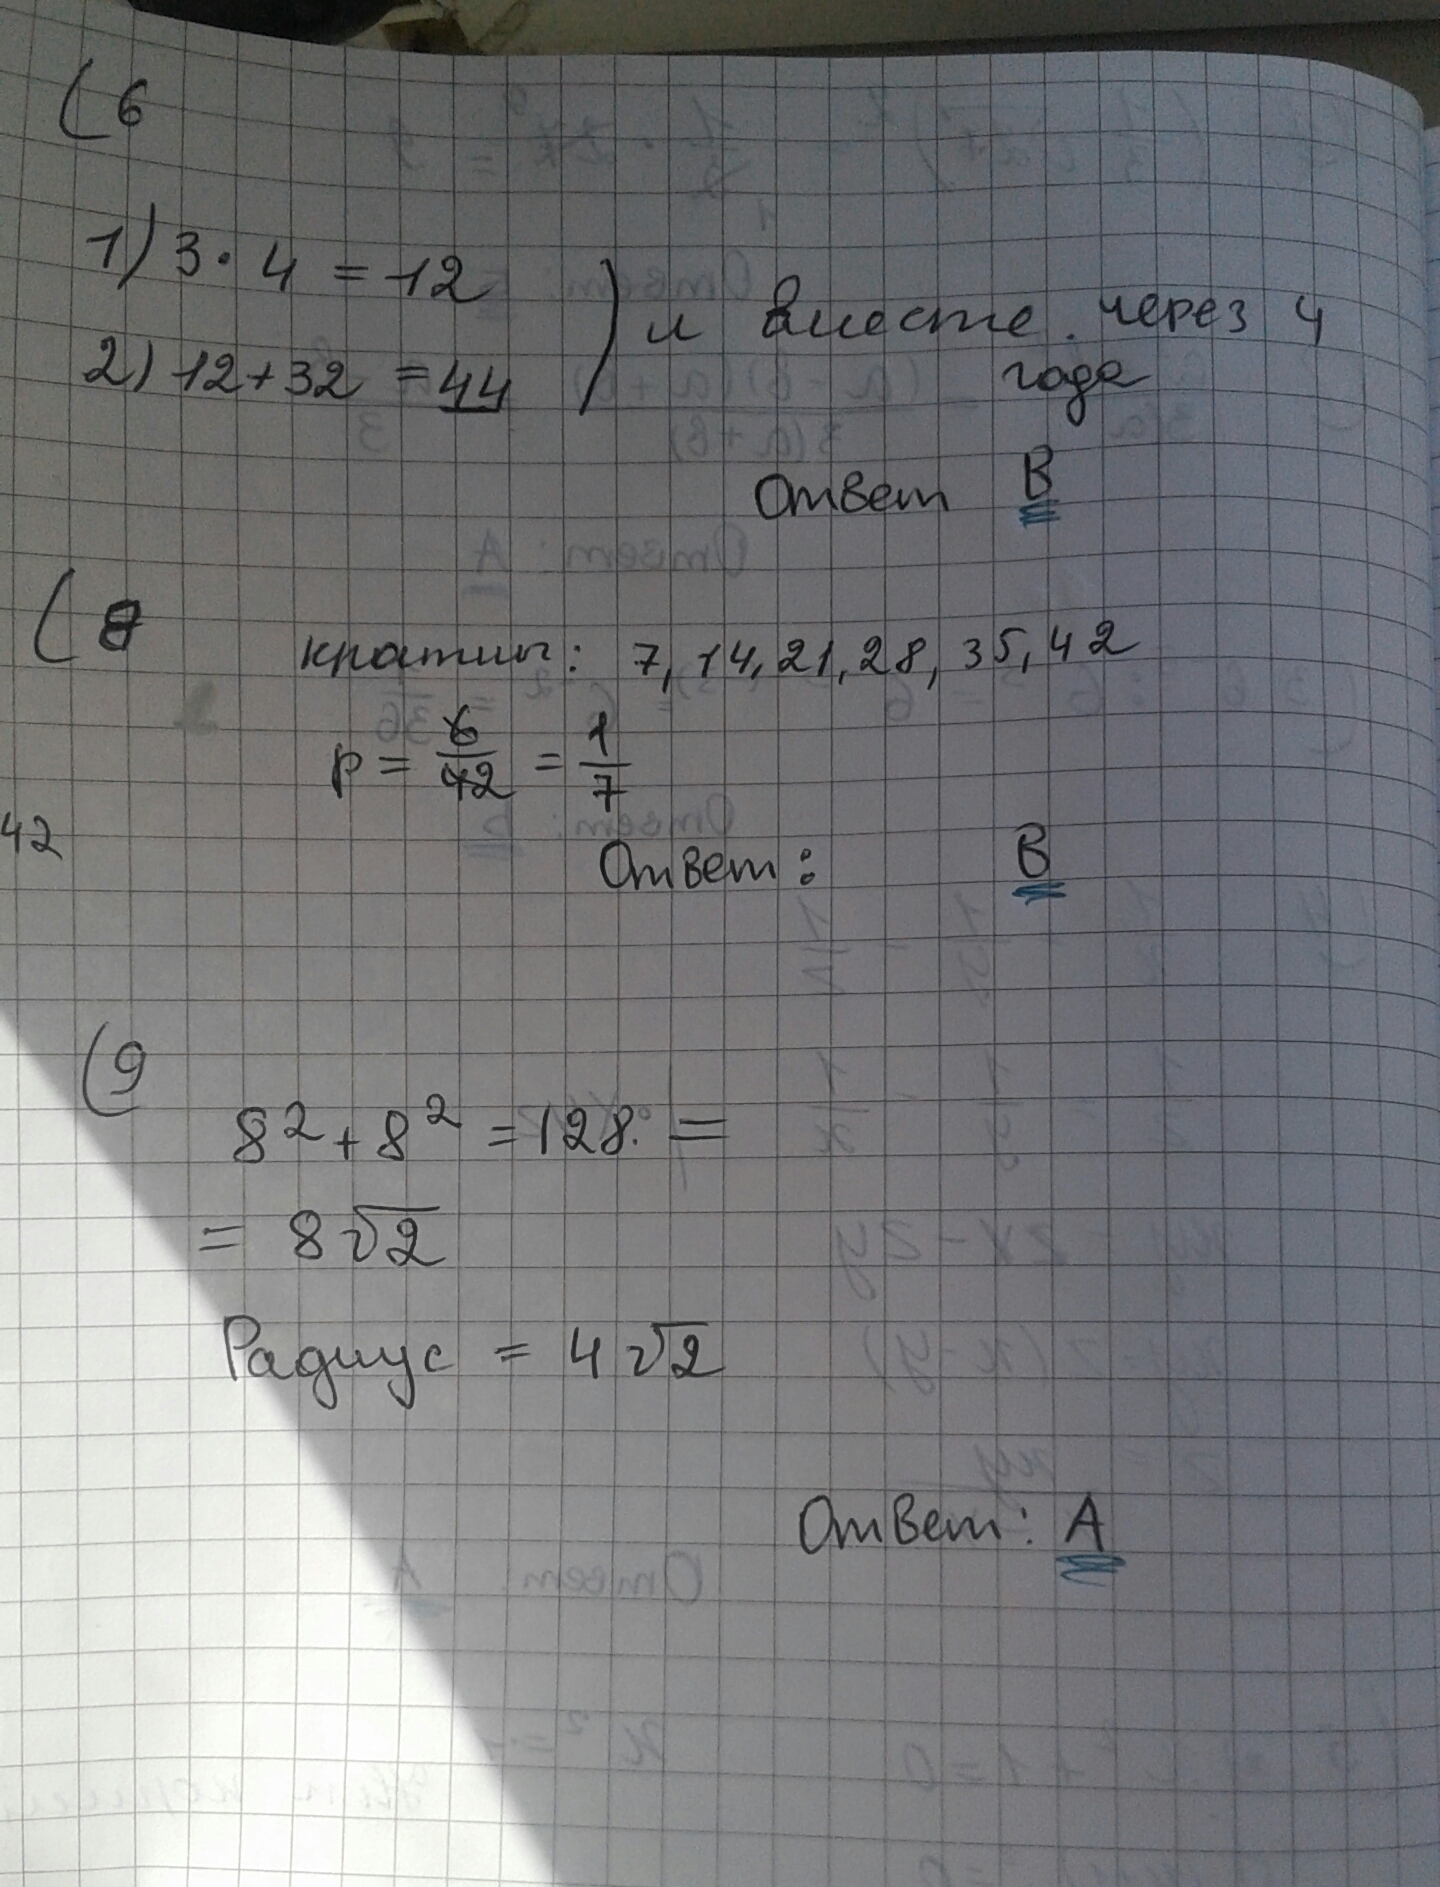 (6
1) 3 · 4 = 12
2) 12 + 32 = 44 ) и вместе через 4
года
Ответ В
(8 кратны: 7, 14, 21, 28, 35, 42
p = 6/42 = 1/7
42
Ответ: В
(9
8² + 8² = 128 =
= 8√2
Радиус = 4√2
Ответ: А